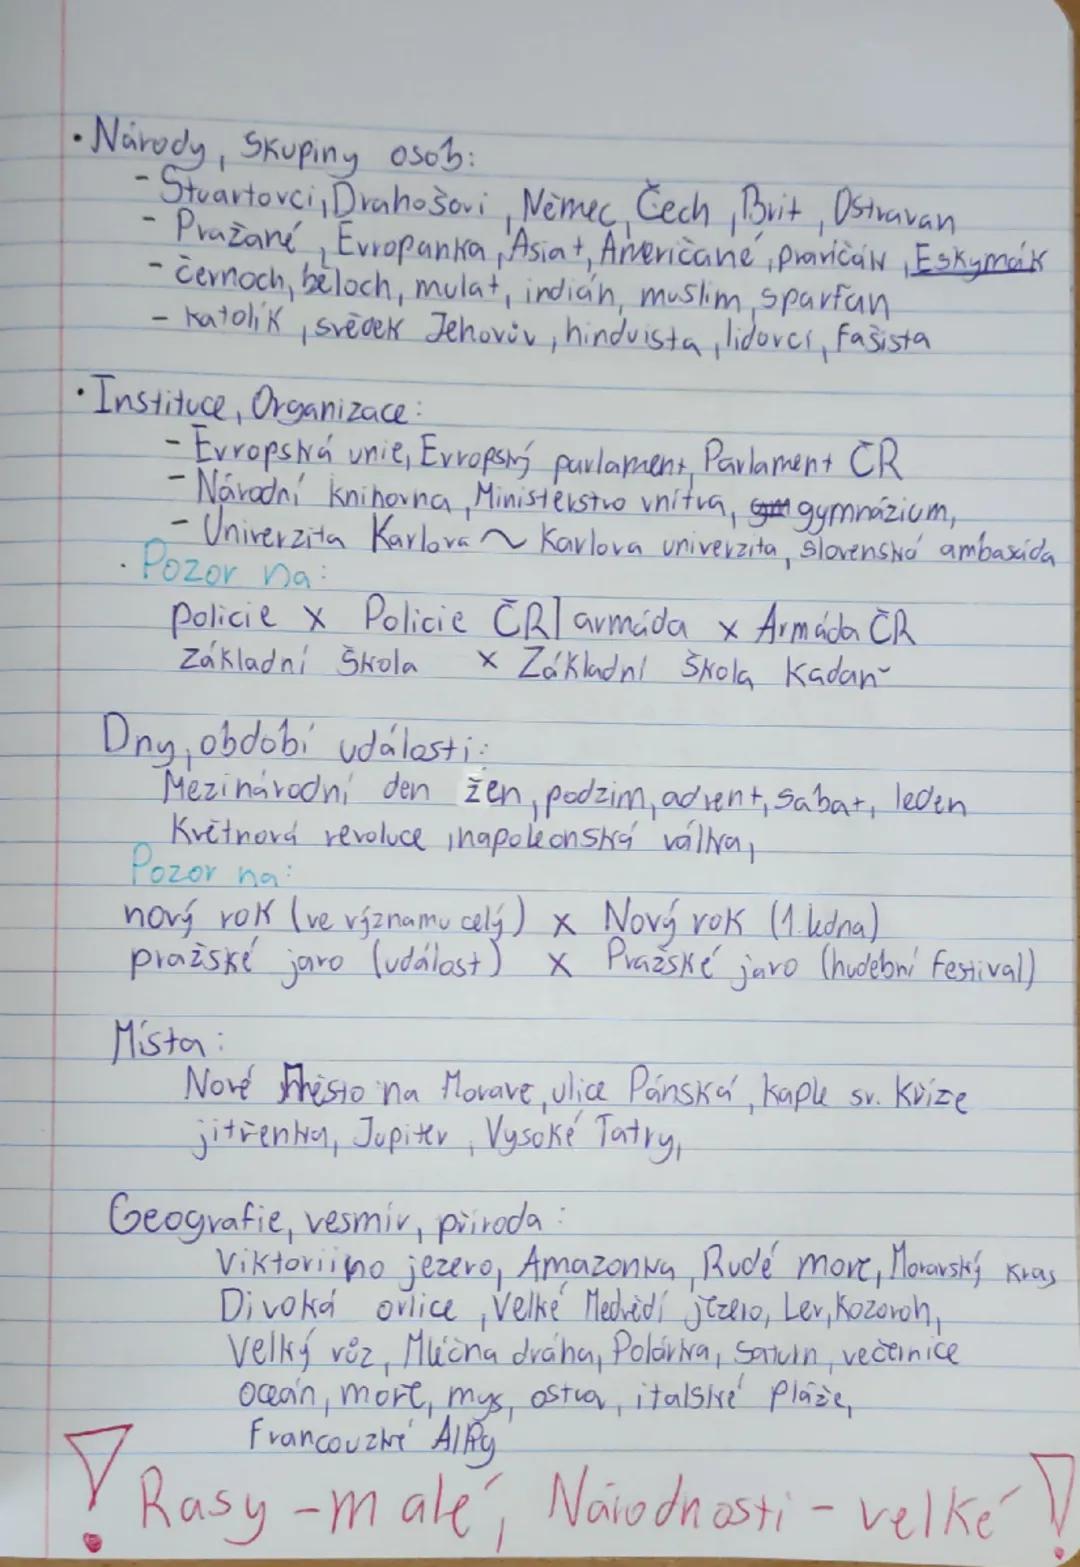 • Národy, Skupiny osob:
- Stuartovci, Drahošovi, Němec, Čech, Brit, Ostravan
- Pražané, Evropanka, Asiat, Američané, pravičák, Eskymák
- černoch, běloch, mulat, indián, muslim, sparťan
- katolík, svědek Jehovův, hinduista, lidovci, fašista
• Instituce, Organizace:
- Evropská unie, Evropský parlament, Parlament ČR
- Národní knihovna, Ministerstvo vnitra, gymnázium,
- Univerzita Karlova ~ Karlova univerzita, slovenská ambasáda
• Pozor na:
policie x Policie ČR | armáda x Armáda ČR
základní škola x Základní škola Kadaň
Dny, období události:
Mezinárodní den žen, podzim, advent, sabat, leden
Květnová revoluce, napoleonská válka,
Pozor na:
nový rok (ve významu celý) x Nový rok (1. ledna)
pražské jaro (událost) x Pražské jaro (hudební festival)
Místa:
Nové Město na Moravě, ulice Pánská, kaple sv. Kříže
jitřenka, Jupiter, Vysoké Tatry,
Geografie, vesmír, příroda:
Viktoriino jezero, Amazonka, Rudé moře, Moravský kras
Divoká orlice, Velké Medvědí jezero, Lev, Kozoroh,
Velký vůz, Mléčná dráha, Polárka, Saturn, večernice
oceán, moře, mys, ostrov, italské pláže,
Francouzké Alpy
! Rasy - malé, Národnosti - velké !